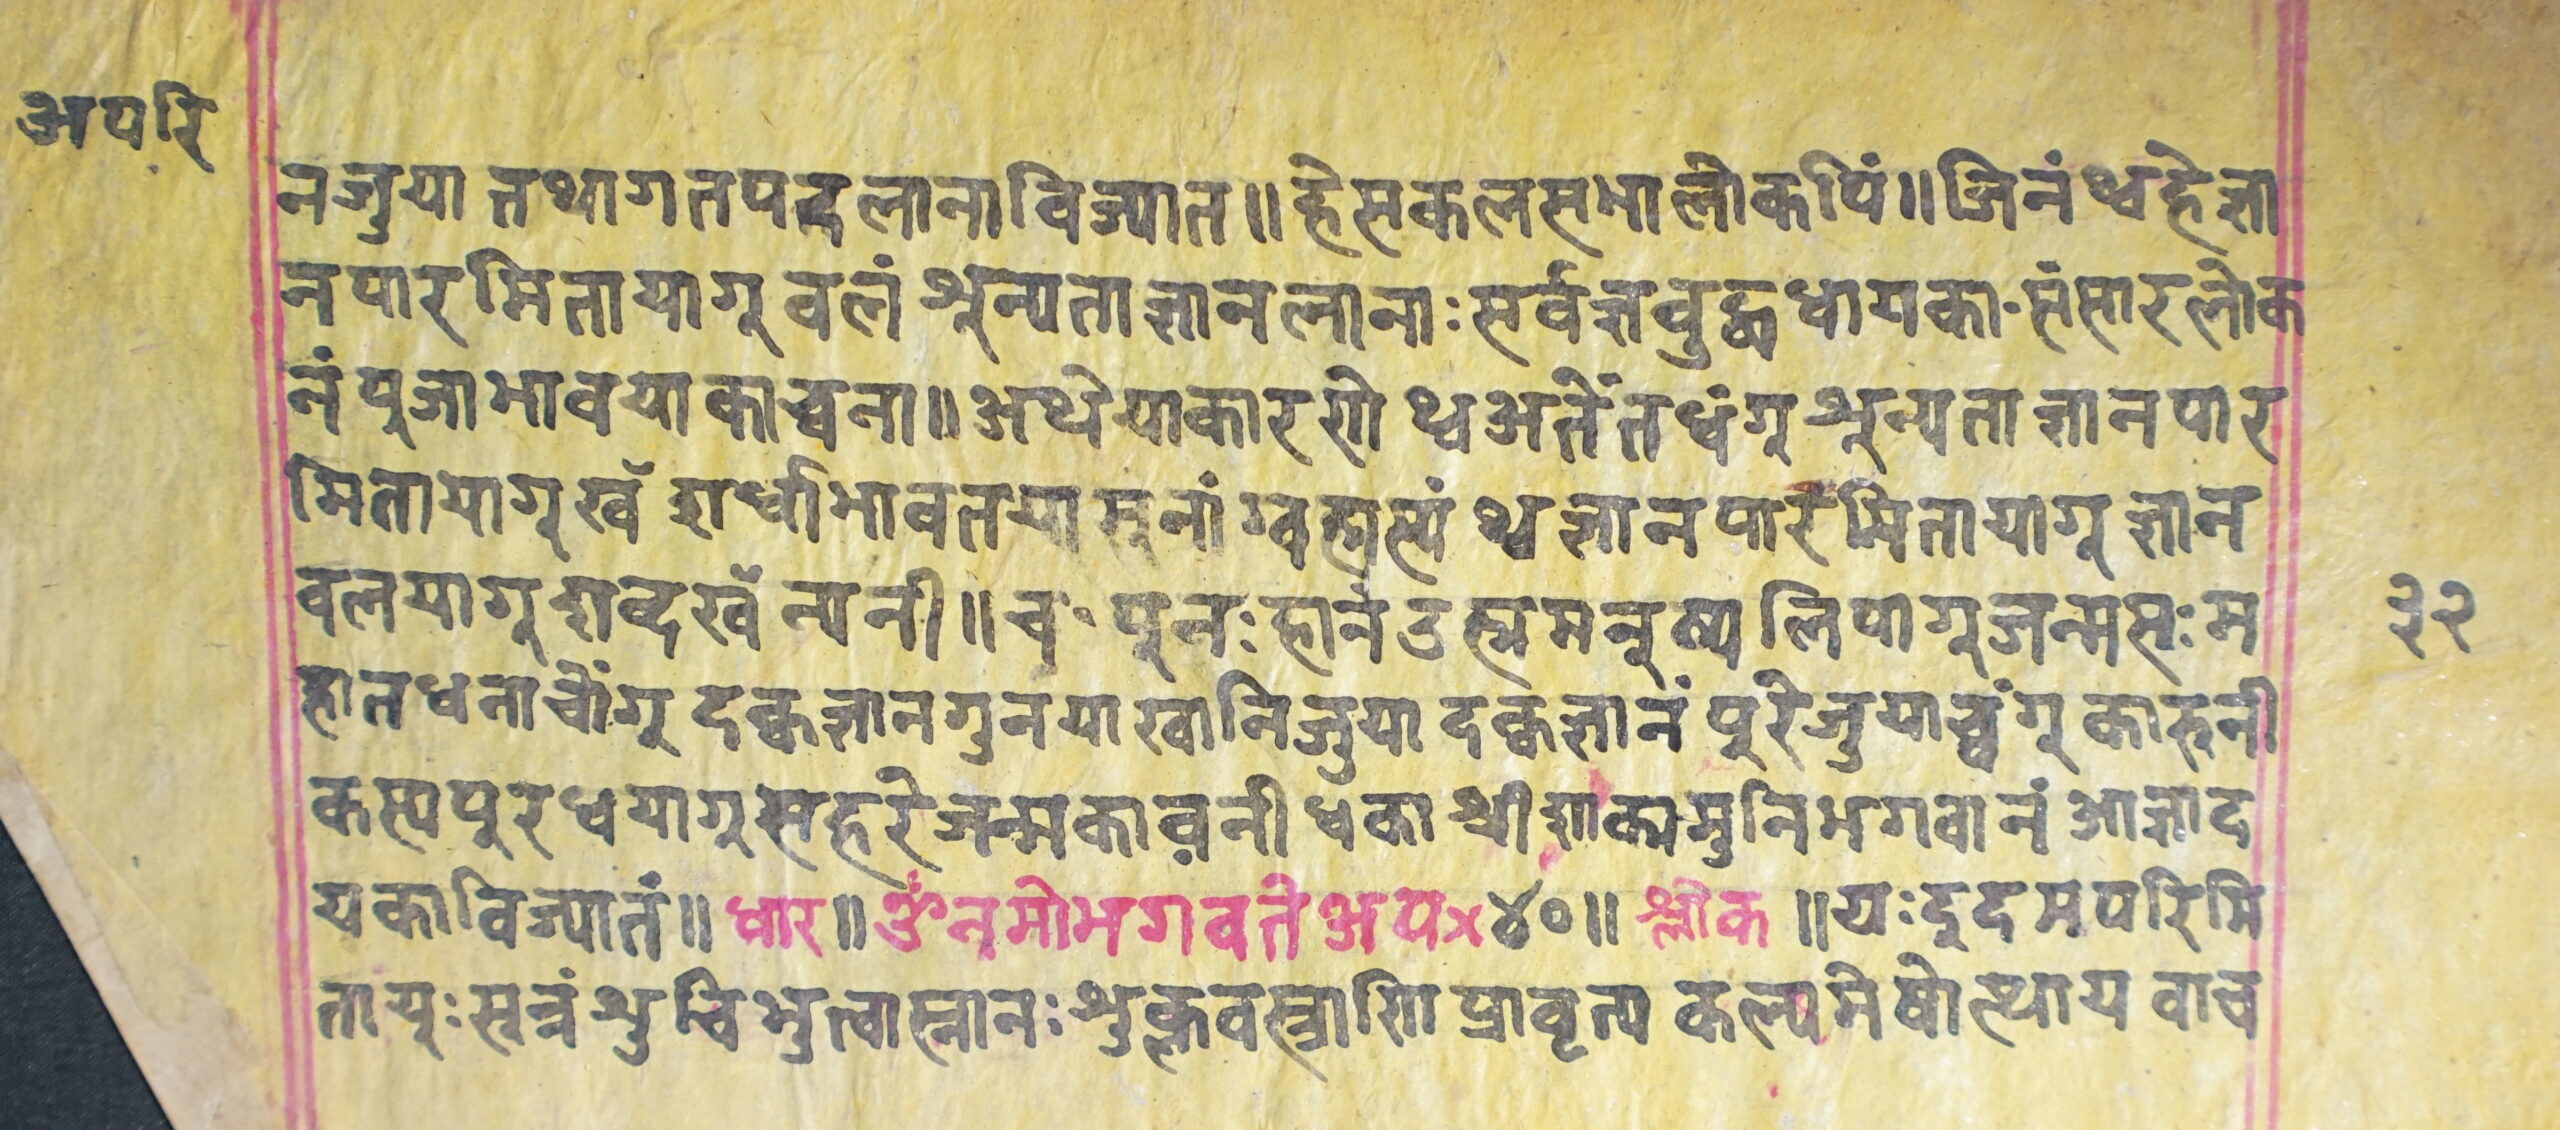 अपरि
नजुया तथागतपदलानाविज्यात॥ हेसकलसभालोकपिं॥ जिनं थ्वहेज्ञा
नपारमितायागू वलं शून्यताज्ञानलानाः सर्वज्ञवुद्ध धायका संसारलोक
नं पूजाभावयाकाच्वना॥ अथेयाकारणे थ्वअतेंतधंगू शून्यताज्ञानपार
मितायागू खँ शर्धाभावतयासुनां ग्वह्मस्यं थ्वज्ञानपारमितायागू ज्ञान
वलयागू शव्दखँ न्यनी॥ व पुनः हानं उह्म मनूष्य लिपागूजन्मसः म
हातधनाचोंगू दक्वज्ञानगुनयाखानिजुया दक्वज्ञानं पुरेजुयाच्वंगू कारुनी
कस्यपुरधयागू सहरे जन्मकावनी धका श्रीशाक्यमुनिभगवानं आज्ञाद
यकाविज्यातं॥ धार॥ ॐनमोभगवते अप× ४०॥ श्लोक ॥ यः इदमपरिमि
तायुः सूत्रं शुचिभुत्वास्नानः शुक्लवस्त्राणि प्रावृत्य कल्यमेषोत्थाय वाच
३२